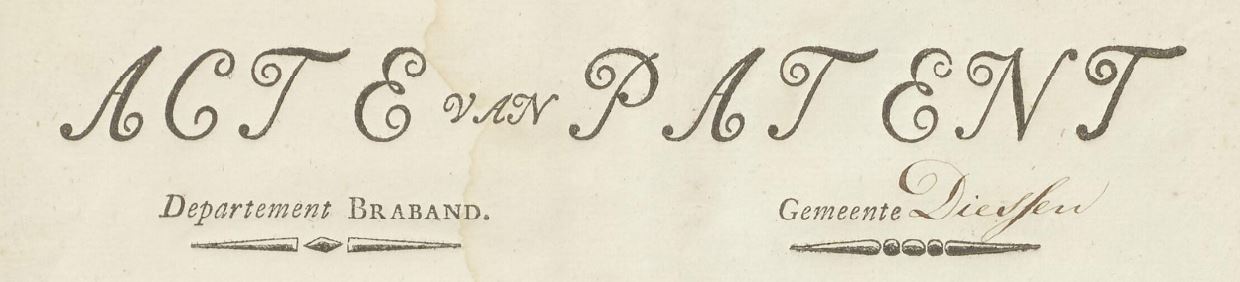 ACTE VAN PATENT
Departement BRABAND.
Gemeente Diessen